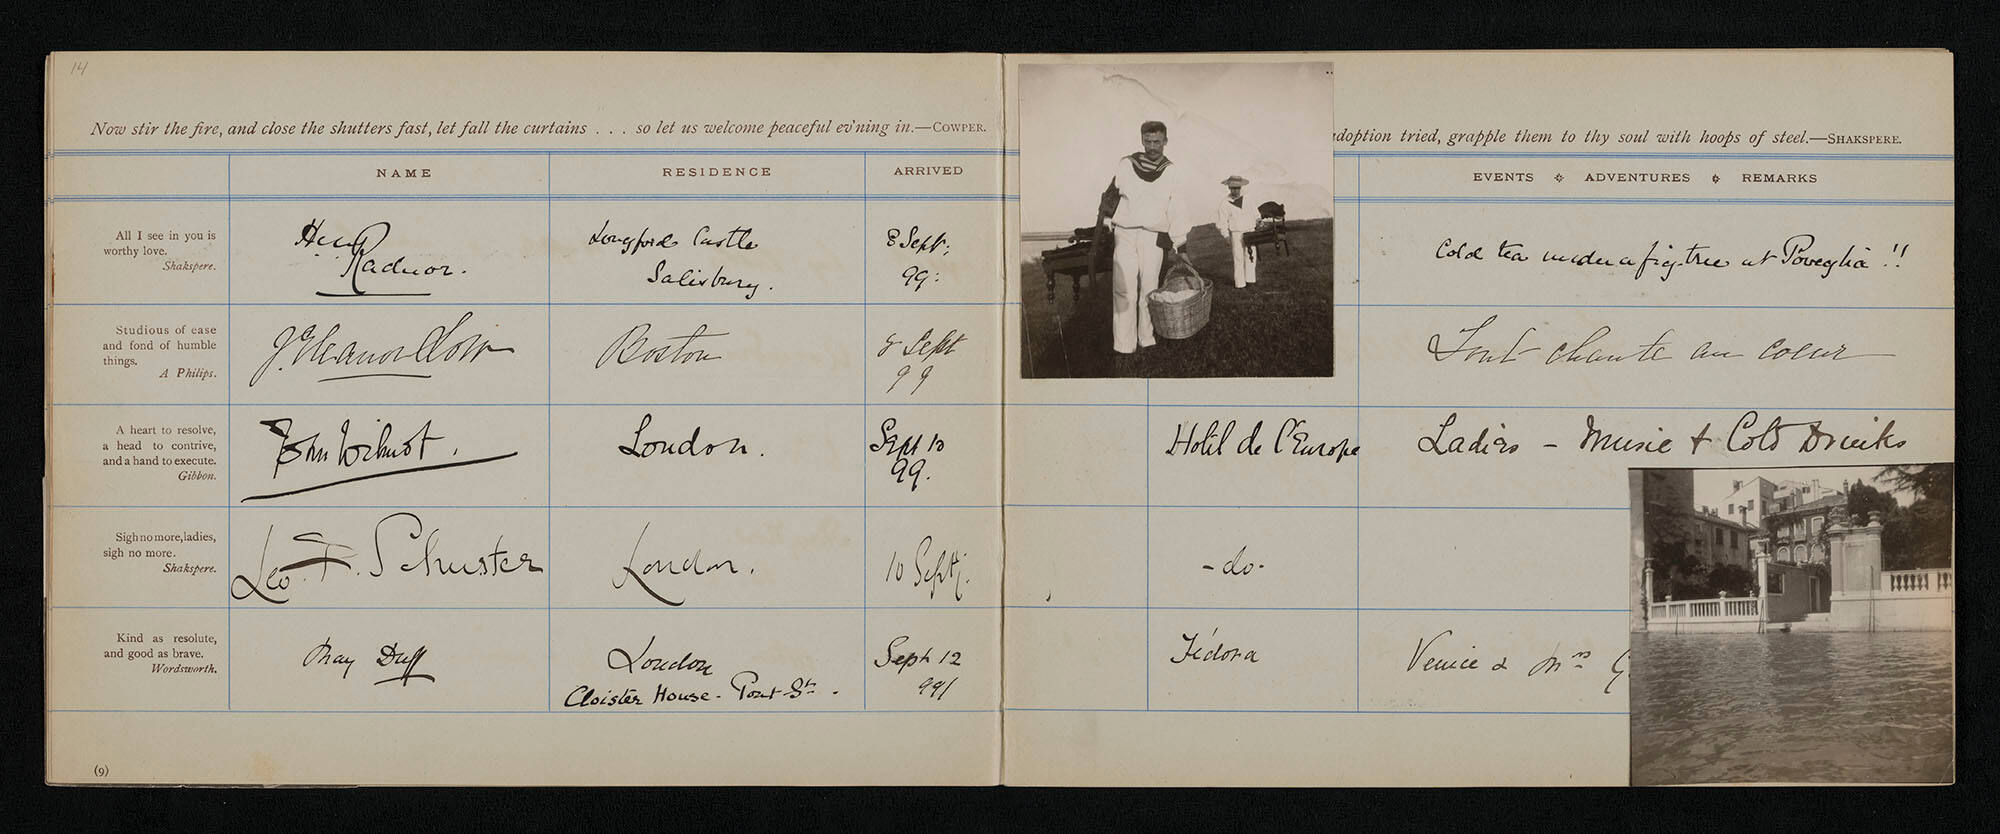 14
Now stir the fire, and close the shutters fast, let fall the curtains . . . so let us welcome peaceful ev'ning in.—COWPER.
NAME RESIDENCE ARRIVED
All I see in you is
worthy love.
Shakspere.
Radnor.
Longford Castle
Salisbury.
8 Sept:
99:
Studious of ease
and fond of humble
things.
A Philips.
Boston
8 Sept
99
A heart to resolve,
a head to contrive,
and a hand to execute.
Gibbon.
London.
Sept 10
99.
Sigh no more, ladies,
sigh no more.
Shakspere.
Leo. F. Schuster
London.
10 Sept:
Kind as resolute,
and good as brave.
Wordsworth.
May Duff
London
Cloister House - Pont St.
Sept 12
99/
(9)
adoption tried, grapple them to thy soul with hoops of steel.—SHAKSPERE.
EVENTS ADVENTURES REMARKS
Cold tea under a fig-tree at Poveglia!!
Tout chante au coeur
Hotel de l'Europe
Ladies - Music & Cold Drinks
-do-
Fédora
Venice & Mrs G